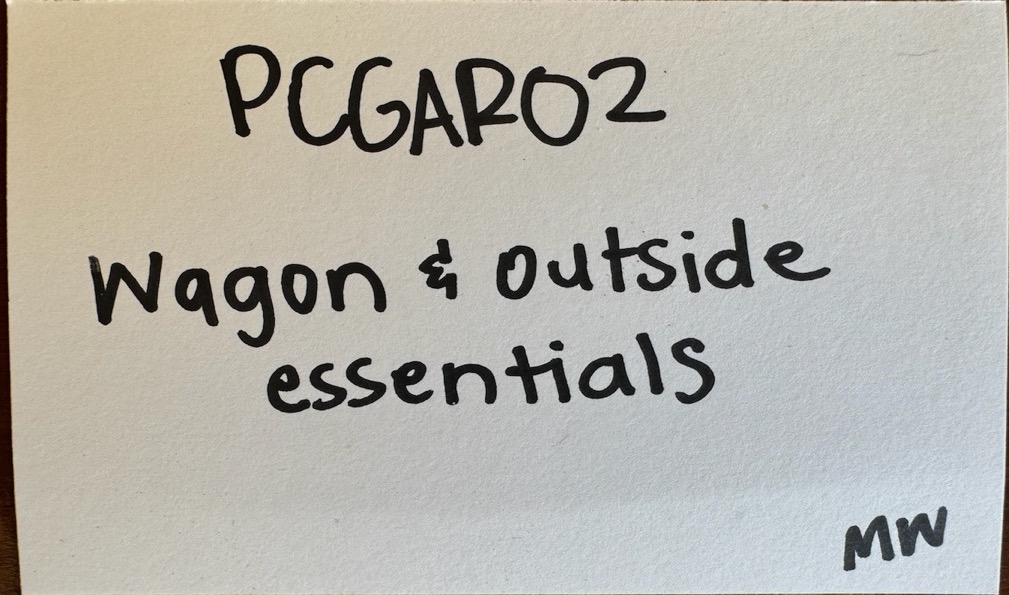 PCGAR02
Wagon & outside
essentials
MW